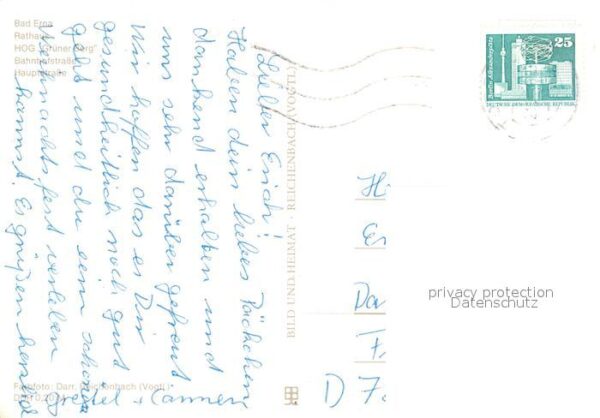 Bad Erna
Rathaus
HOG "Grüner Berg"
Bahnhofstraße
Hauptstraße
Lieber Erich!
Haben dein liebes Päckchen
dankend erhalten und
uns sehr darüber gefreut
Wir hoffen das es Dir
gesundheitlich noch gut
geht und du ein schönes
Weihnachtsfest verleben
kannst. Es grüßen herzlich
Gretel + Carmen
Farbfoto: Darr, Reichenbach (Vogtl.)
BILD UND HEIMAT · REICHENBACH (VOGTL
25
Berlin, Alexanderplatz
DEUTSCHE DEMOKRATISCHE REPUBLIK
Da
D 7
privacy protection
Datenschutz